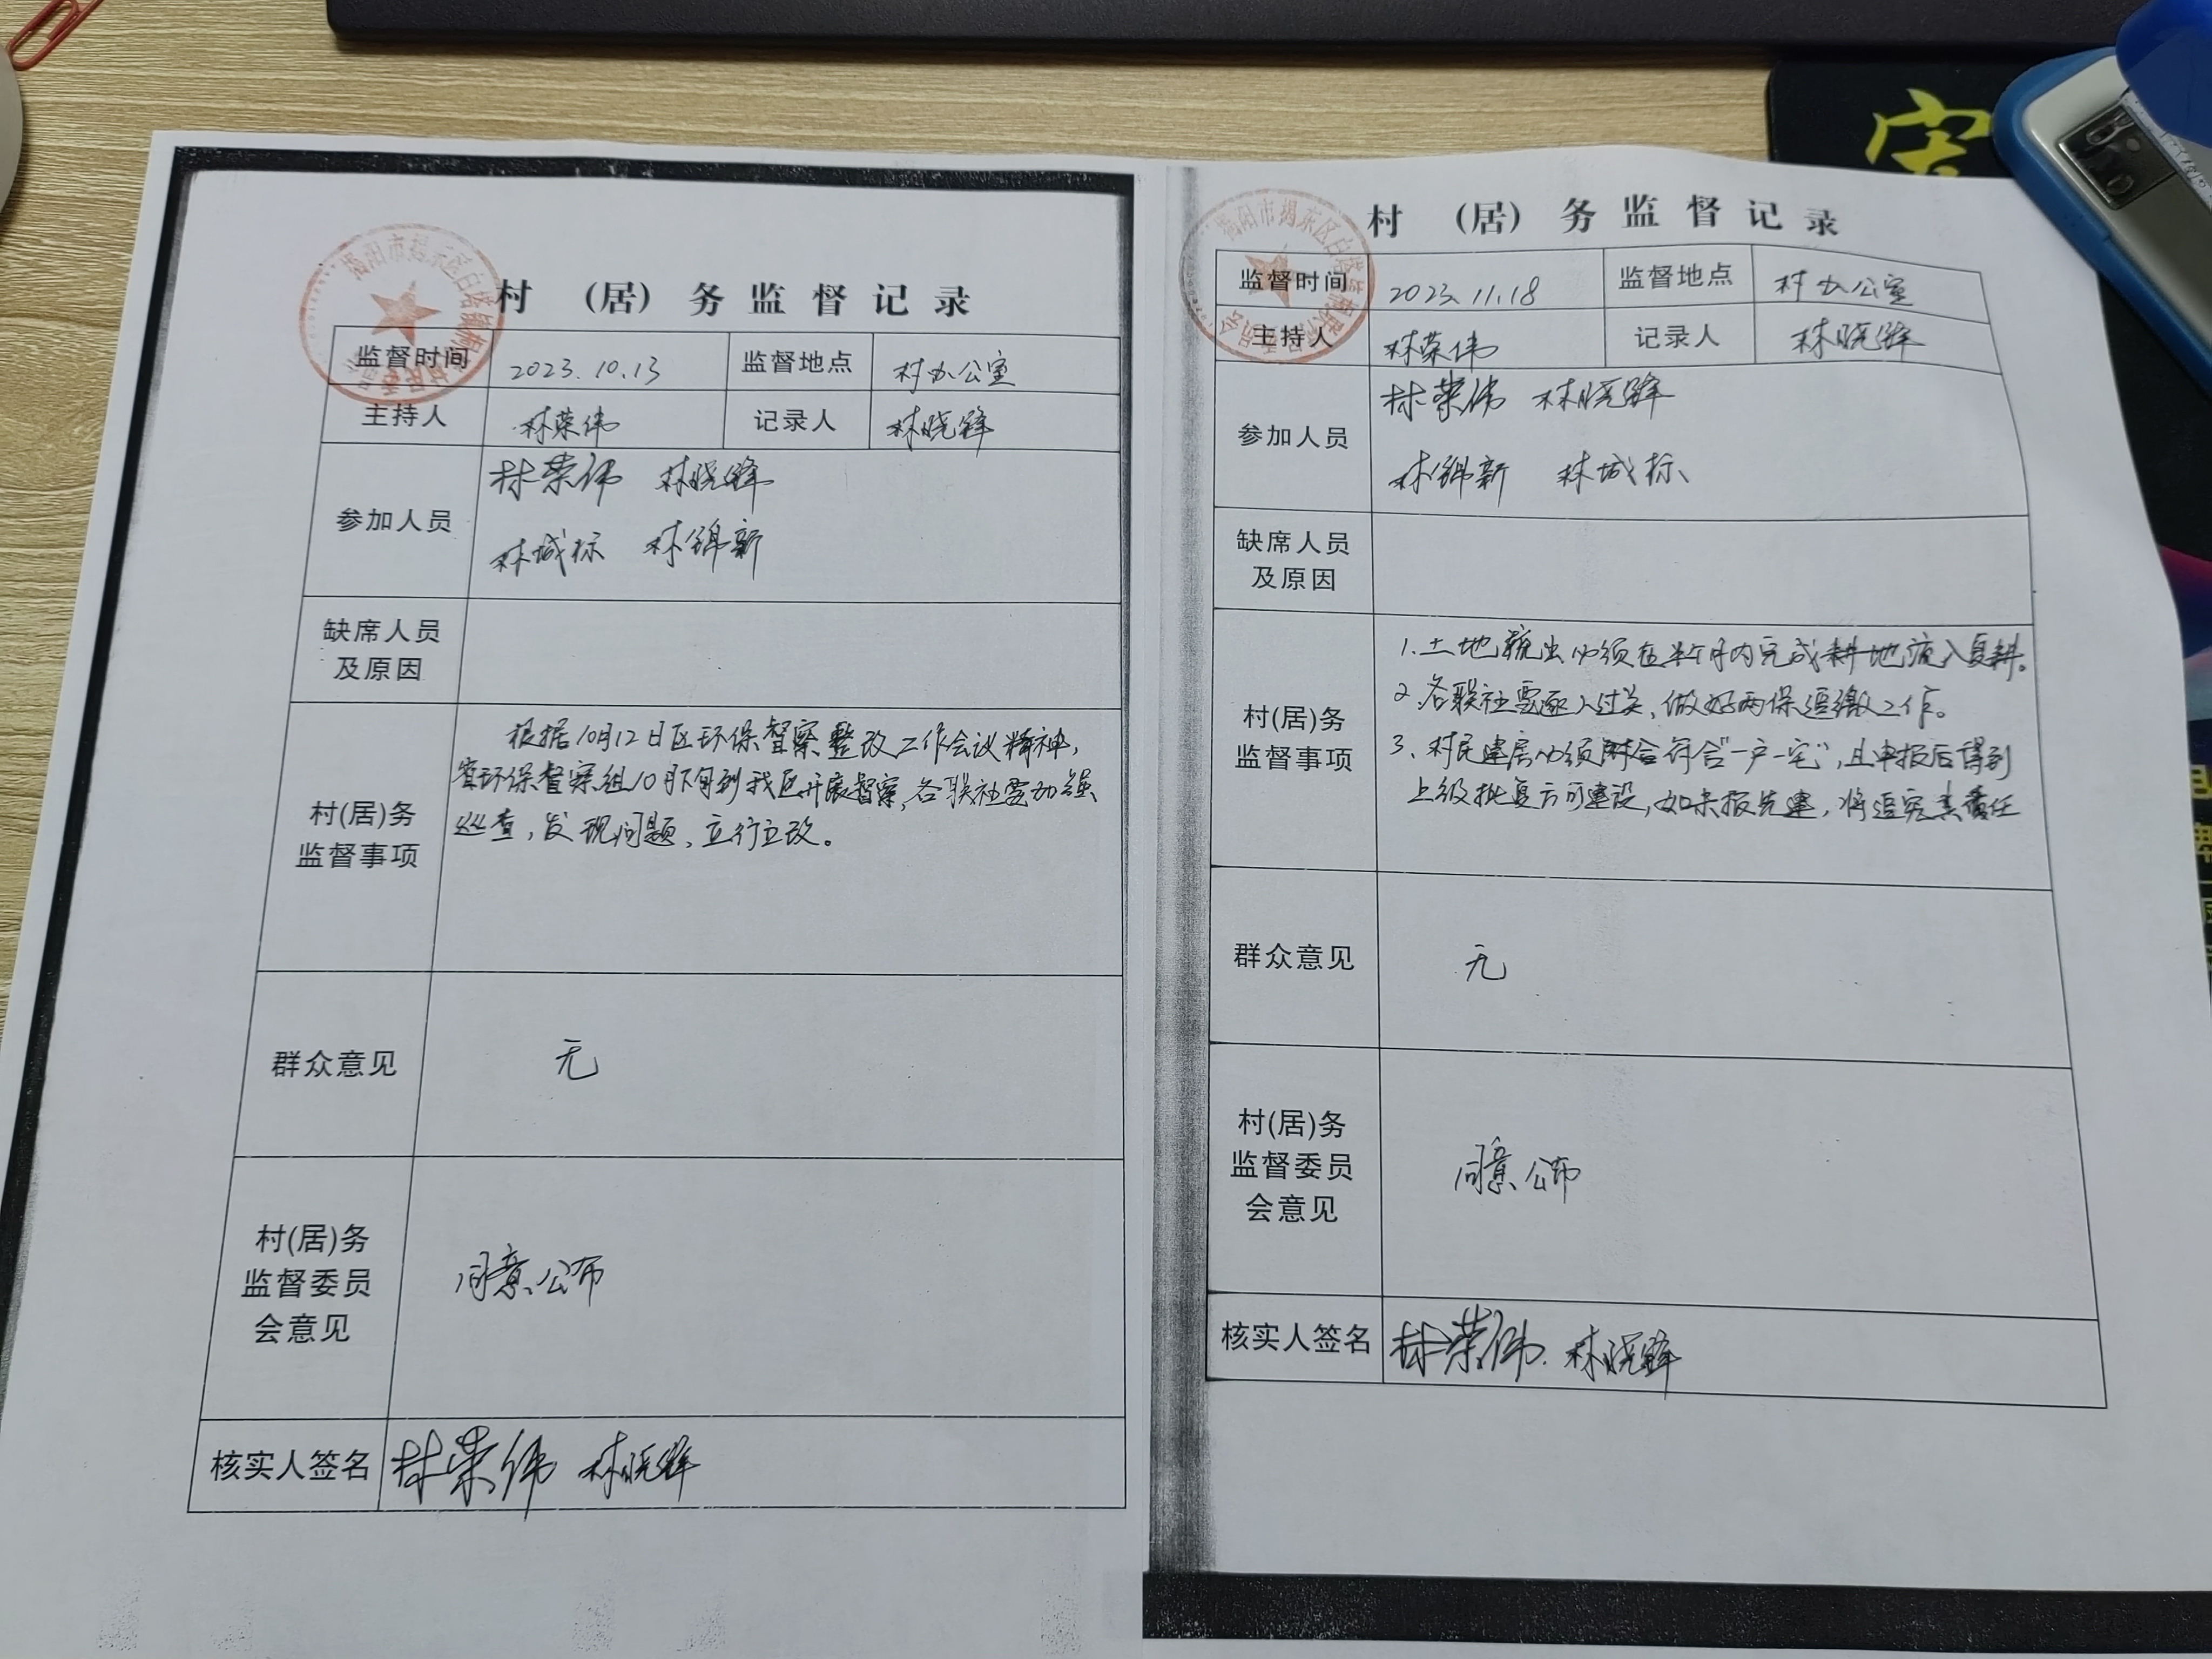 村 (居) 务监督记录
监督时间 2023.10.13 监督地点 村办公室
主持人 林荣伟 记录人 林晓锋
参加人员
林荣伟 林晓锋
林城标 林锦新
缺席人员
及原因
村(居)务
监督事项
根据10月12日区环保督察整改工作会议精神,
省环保督察组10月下旬到我区开展督察,各联社需加强
巡查,发现问题,立行立改。
群众意见 无
村(居)务
监督委员
会意见
同意公布
核实人签名 林荣伟 林晓锋
揭阳市揭东区白塔镇
村 (居) 务监督记录
监督时间 2023.11.18 监督地点 村办公室
主持人 林荣伟 记录人 林晓锋
参加人员
林荣伟 林晓锋
林锦新 林城标
缺席人员
及原因
村(居)务
监督事项
1.土地流出必须在半个月内完成耕地流入复耕。
2.各联社需逐人过关,做好两保追缴工作。
3.村民建房必须符合“一户一宅”,且申报后得到
上级批复方可建设,如未报先建,将追究其责任
群众意见 无
村(居)务
监督委员
会意见
同意公布
核实人签名 林荣伟 林晓锋
揭阳市揭东区白塔镇